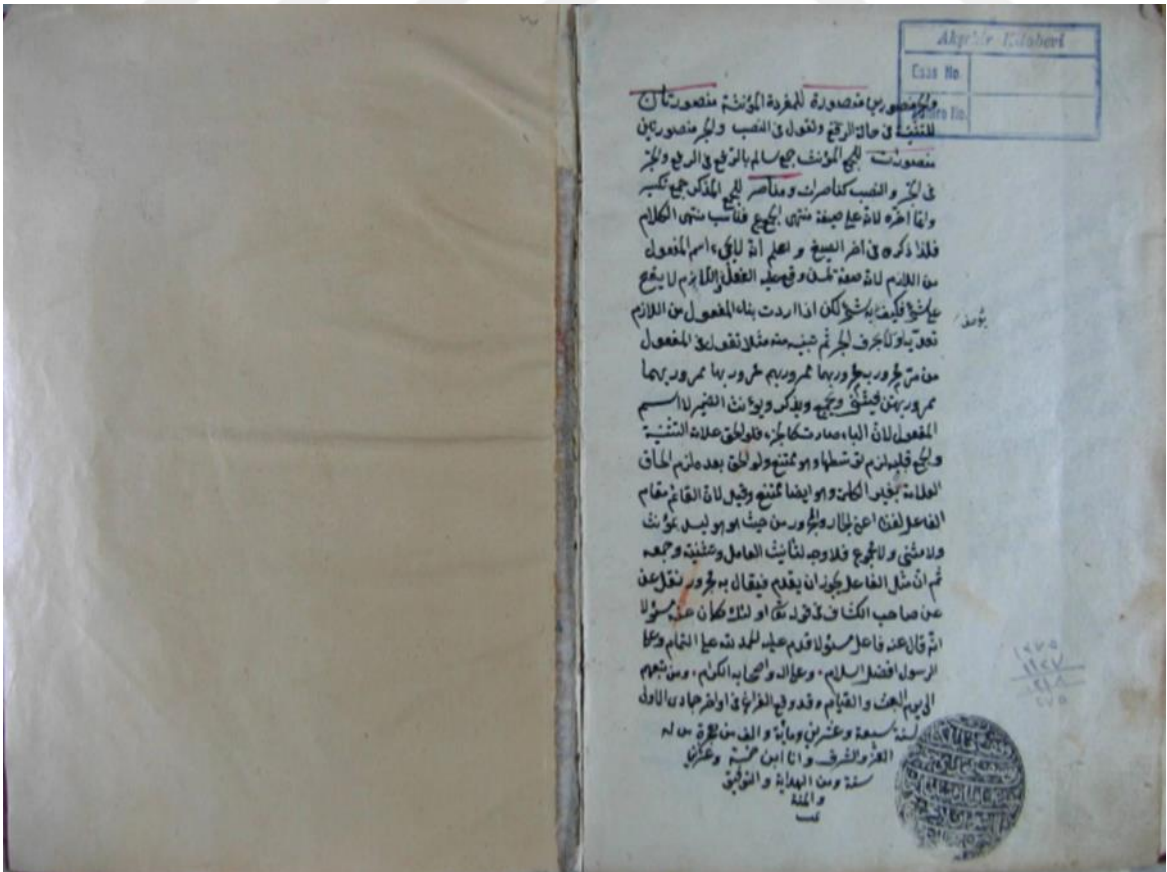 Akşehir
Esas No.
منصورة للمفردة المؤنثة منصورتان
للتثنية فى حالة الرفع وتقول فى النصب والجر منصورتين
منصورات للجمع المؤنث جمع سالم بالرفع فى الرفع والجر
فى الجر والنصب كناصرات ومناصر للجمع المذكر جمع تكسير
وانما اخره لانه على صيغة منتهى الجموع فناسب منتهى الكلام
فلذا ذكره فى اخر الصيغ واعلم انه لا يجىء اسم المفعول
من اللازم لانه صفة لمن وقع عليه الفعل واللازم لا يقع
على شئ فكيف به شئ لكن اذا اردت بناء المفعول من اللازم
يوصف
بحرف الجر ثم تبنيه منه مثلا تقول فى المفعول
من مر ممرور به ممرور بهما ممرور بهم ممرور بها ممرور بهما
ممرور بهن فيثنى ويجمع ويذكر ويؤنث الضمير لا اسم
المفعول لان الباء صارت كالجزء فلو لحق علامة التثنية
والجمع قبله لزم توسطها وهو ممتنع ولو لحق بعده لزم الحاق
العلامة بغير الكلمة وهو ايضا ممتنع وقيل لان القائم مقام
الفاعل لفظا اعنى الجار والمجرور من حيث هو هو ليس بمؤنث
ولا مثنى ولا مجموع فلا وجه لتأنيث العامل وتثنيته وجمعه
ثم ان مثل الفاعل يجوز ان يقدم فيقال به ممرور نقل عن
عن صاحب الكشاف فى قوله تعا اولئك كان عنه مسؤلا
انه قال عنه فاعل مسئولا قدم عليه الحمد لله على التمام وعلى
الرسول افضل السلام وعلى اله واصحابه الكرام ومن تبعهم
الى يوم البعث والقيام وقد وقع الفراغ فى اواخر جمادى الاولى
لسنة سبعة وعشرين ومائة والف من هجرة من له
العز والشرف وانا ابن خمسة وعشرين
سنة ومن الهداية والتوفيق
والمنة